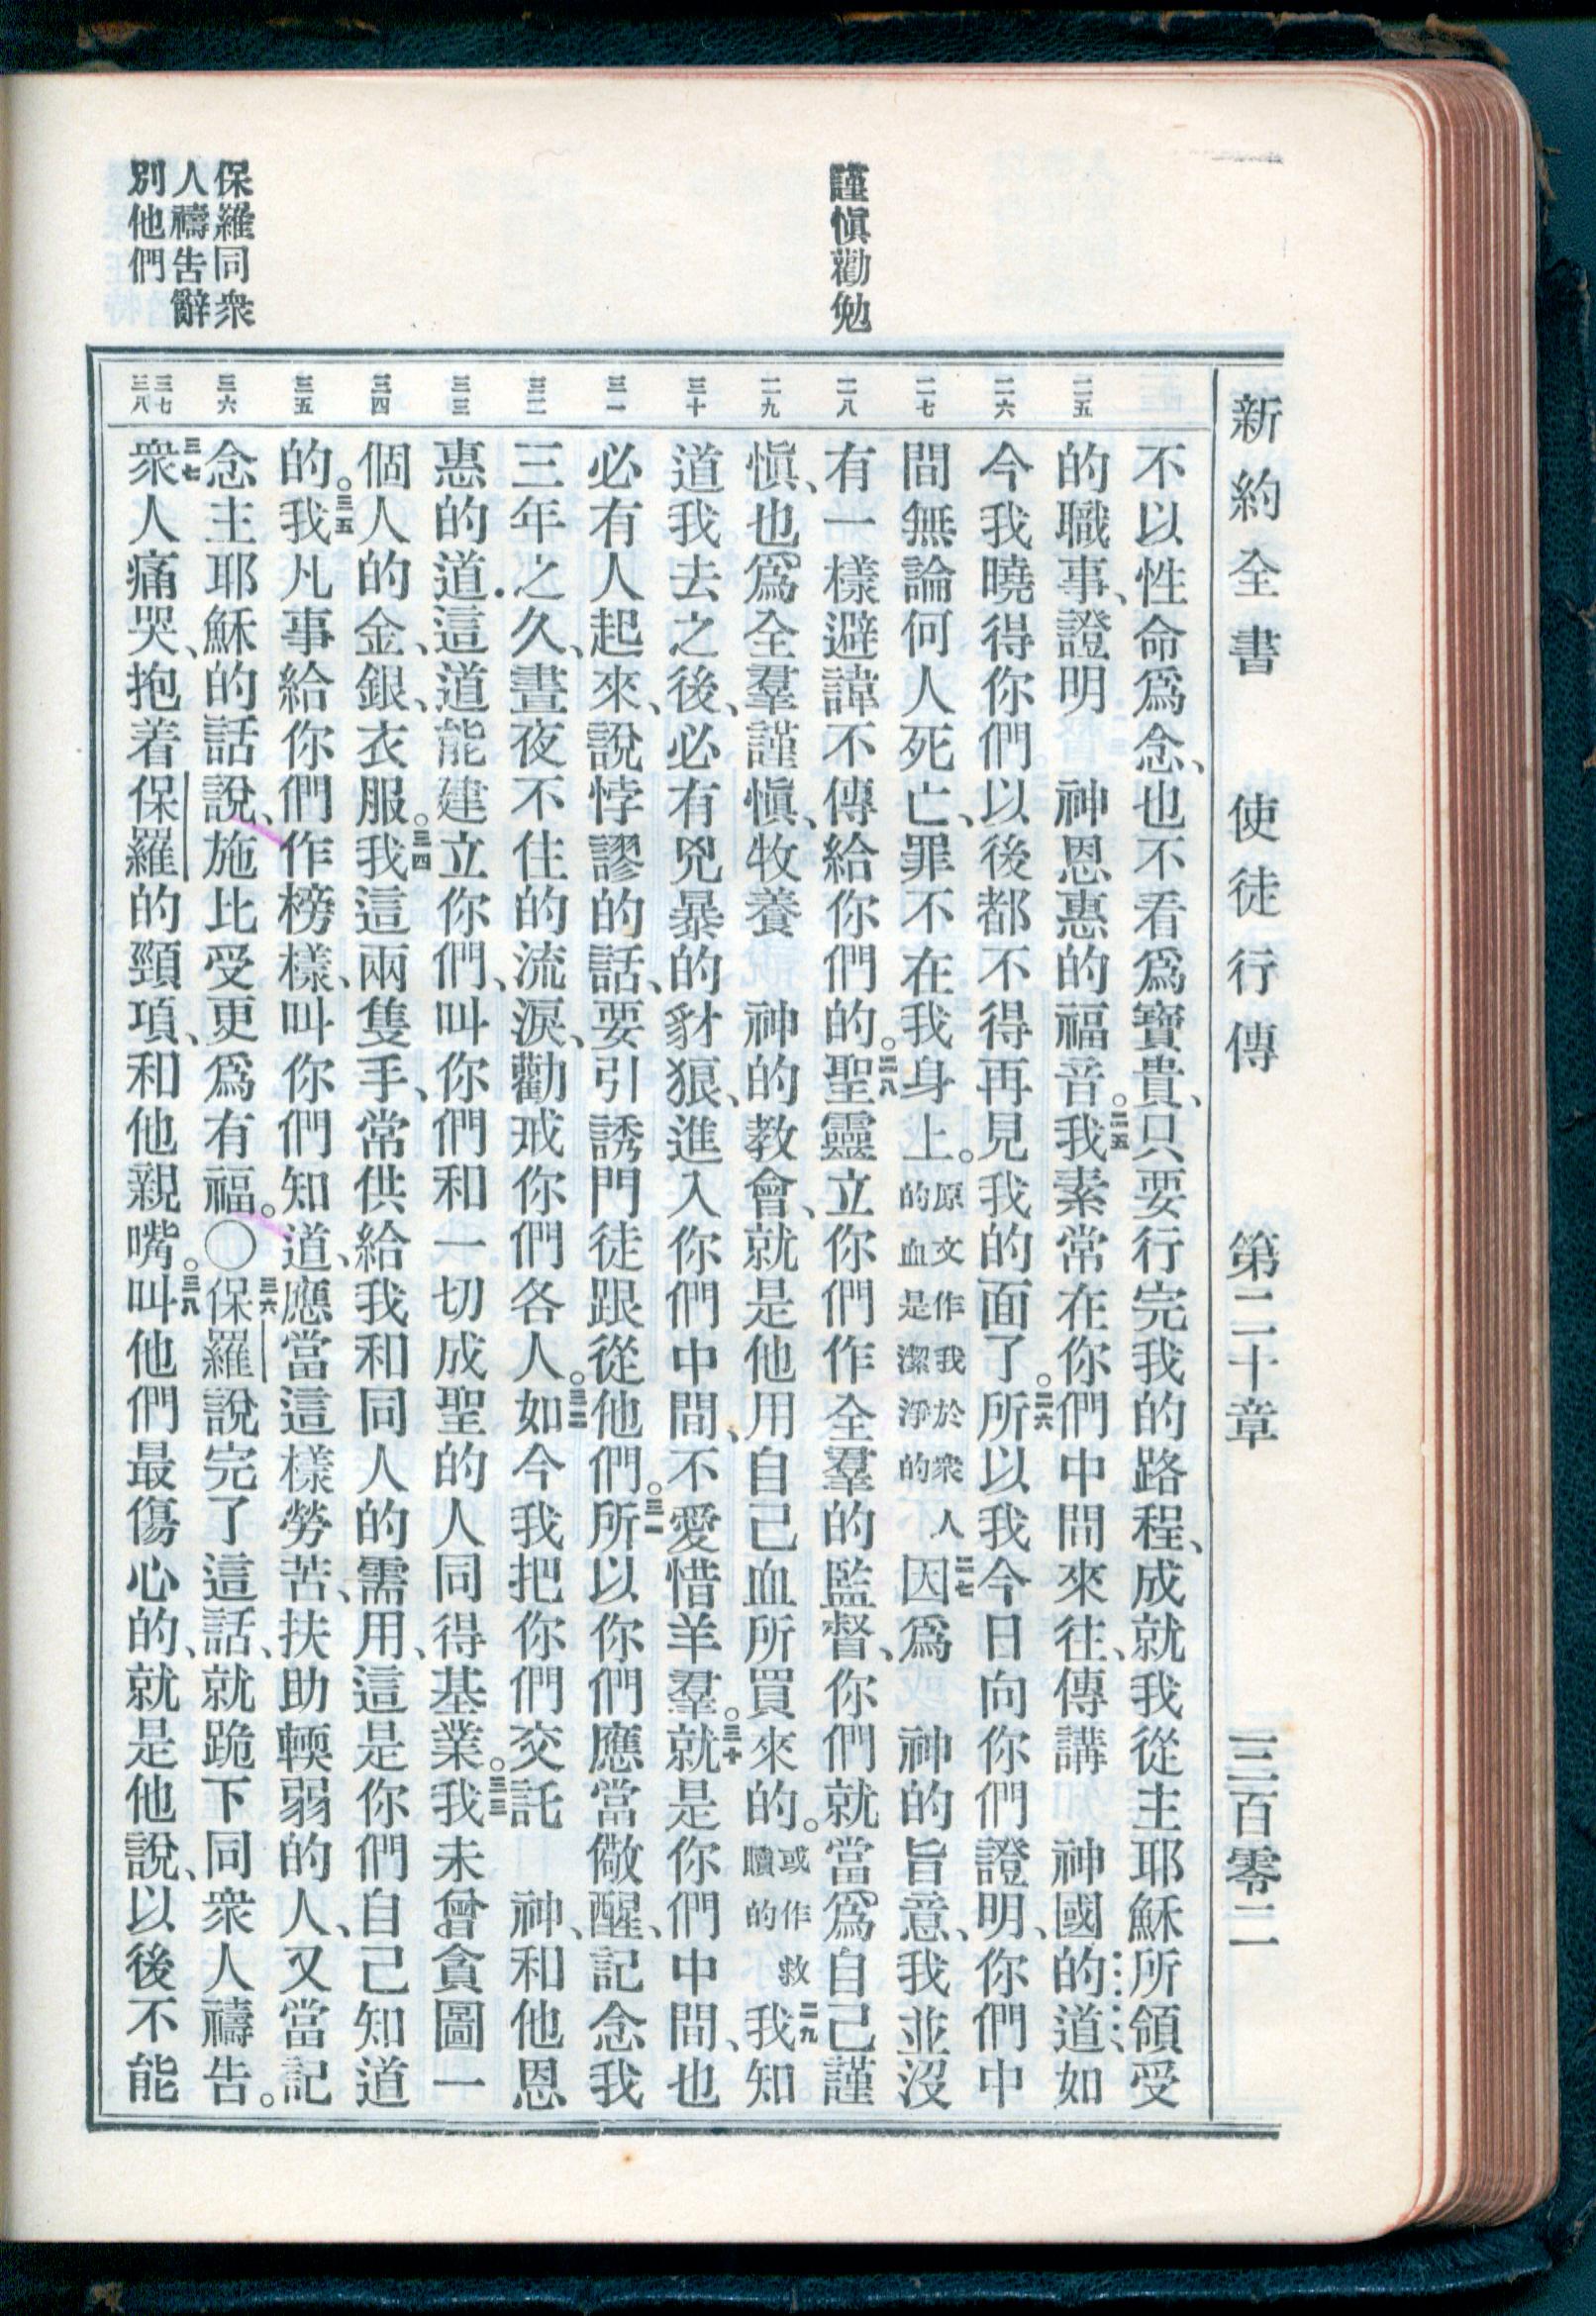 新約全書　使徒行傳　第二十章　三百零二
謹愼勸勉
保羅同衆
人禱吿辭
別他們
二五
二六
二七
二八
二九
三十
三一
三二
三三
三四
三五
三六
三七
三八
不以性命爲念、也不看爲寶貴、只要行完我的路程、成就我從主耶穌所領受
的職事、證明　神恩惠的福音。二五我素常在你們中間來往、傳講　神國的道如
今我曉得你們以後都不得再見我的面了。二六所以我今日向你們證明、你們中
間無論何人死亡、罪不在我身上。原文作我於衆人的血是潔淨的二七因爲　神的旨意、我並沒
有一樣避諱不傳給你們的。二八聖靈立你們作全羣的監督、你們就當爲自己謹
愼、也爲全羣謹愼、牧養　神的教會、就是他用自己血所買來的。或作救贖的二九我知
道我去之後、必有兇暴的豺狼、進入你們中間、不愛惜羊羣。三十就是你們中間、也
必有人起來、說悖謬的話、要引誘門徒跟從他們。三一所以你們應當儆醒、記念我
三年之久、晝夜不住的流淚、勸戒你們各人。三二如今我把你們交託　神、和他恩
惠的道．這道能建立你們、叫你們和一切成聖的人同得基業。三三我未曾貪圖一
個人的金、銀、衣服。三四我這兩隻手、常供給我和同人的需用、這是你們自己知道
的。三五我凡事給你們作榜樣、叫你們知道、應當這樣勞苦、扶助輭弱的人、又當記
念主耶穌的話說、施比受更爲有福。〇三六保羅說完了這話、就跪下同衆人禱吿。
三七衆人痛哭、抱着保羅的頸項、和他親嘴。三八叫他們最傷心的、就是他說、以後不能